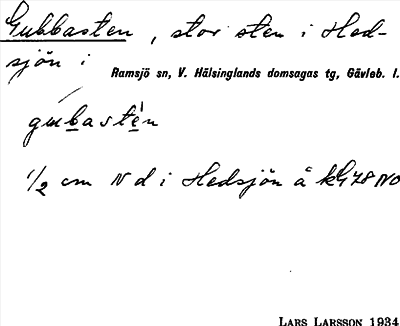 Gubbasten, stor sten i Hed-
sjön i Ramsjö sn, V. Hälsinglands domsagas tg, Gävleb. l.
gubastén
1/2 cm N d i Hedsjön å kG78NO
LARS LARSSON 1934